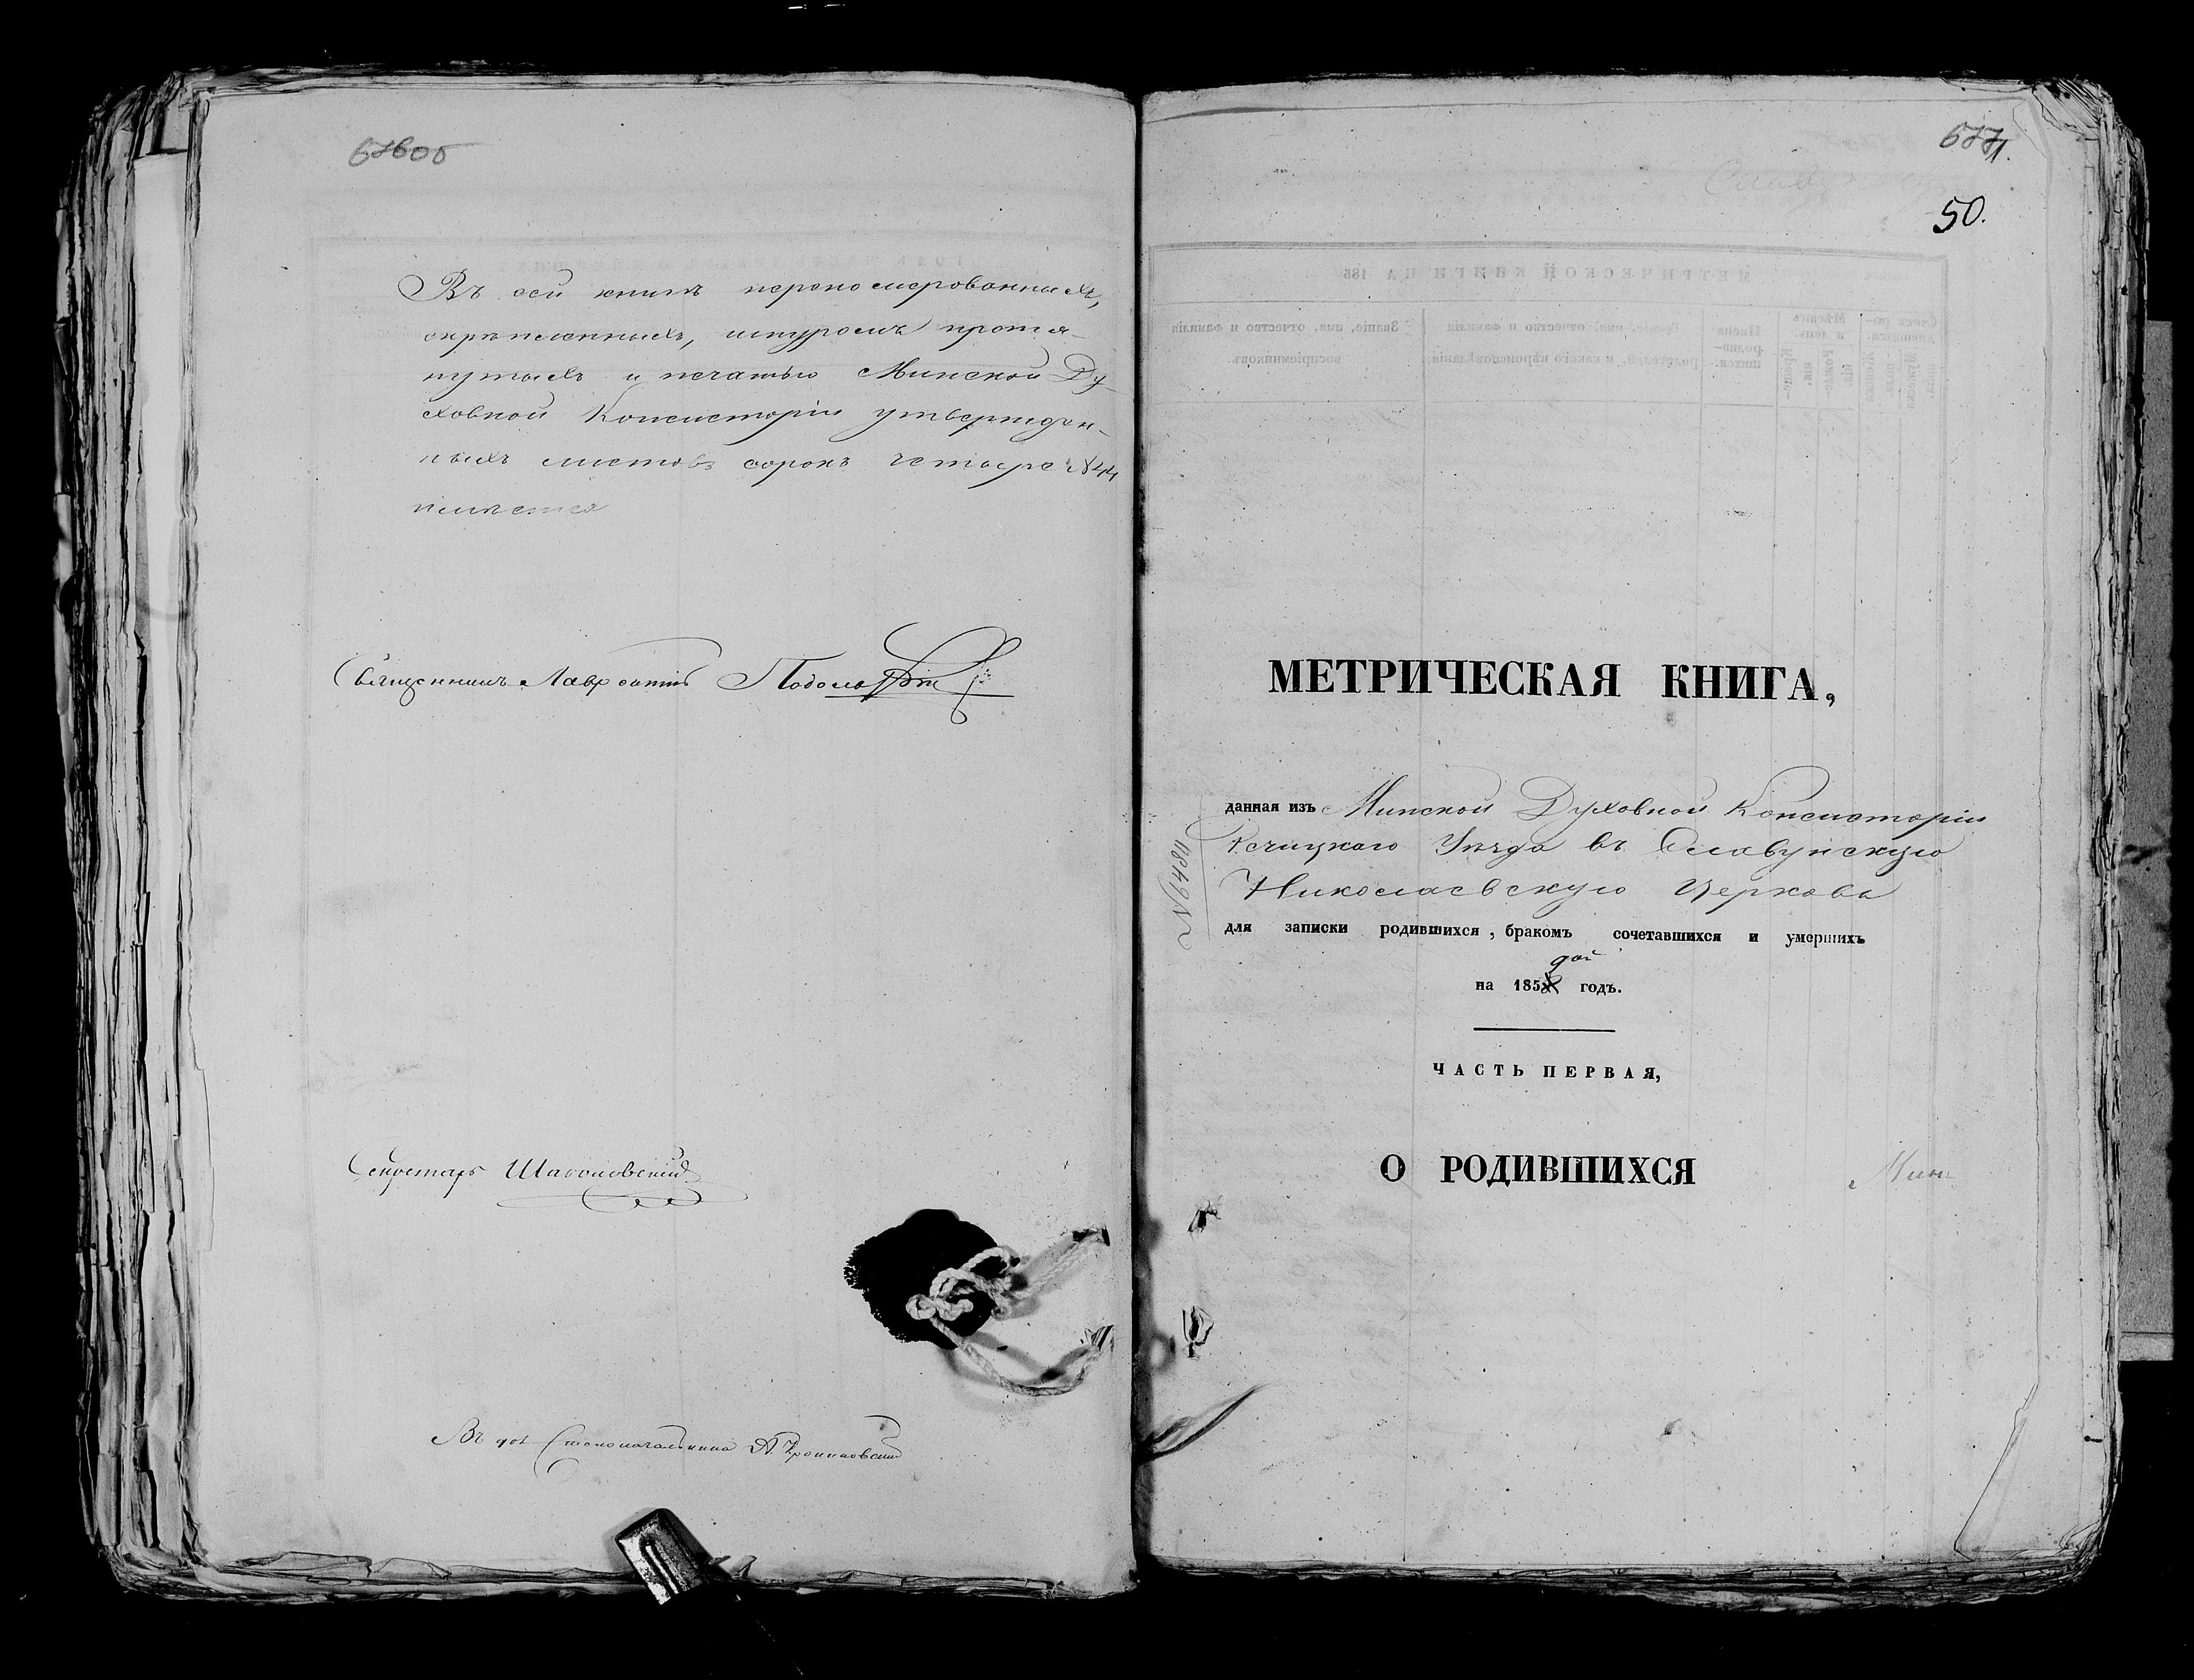 676об
Въ сей книгѣ перено­мерованныхъ,
скрѣпленныхъ, шнуромъ протя-
нутыхъ и печатью Минской Ду-
ховной Консисторіи утвержден-
ныхъ листовъ сорокъ четыре №44
имѣется
Священникъ Лаврентій
Секретарь
Въ дол Столоначальника А.
677
1.
50.
МЕТРИЧЕСКАЯ КНИГА,
данная изъ Минской Духовной Консисторіи
Рѣчицкаго Уѣзда въ Славунскую
Николаевскую Церковь
№6480
для записки родившихся, бракомъ сочетавшихся и умершихъ
на 1858 годъ.
ЧАСТЬ ПЕРВАЯ,
О РОДИВШИХСЯ
Мин